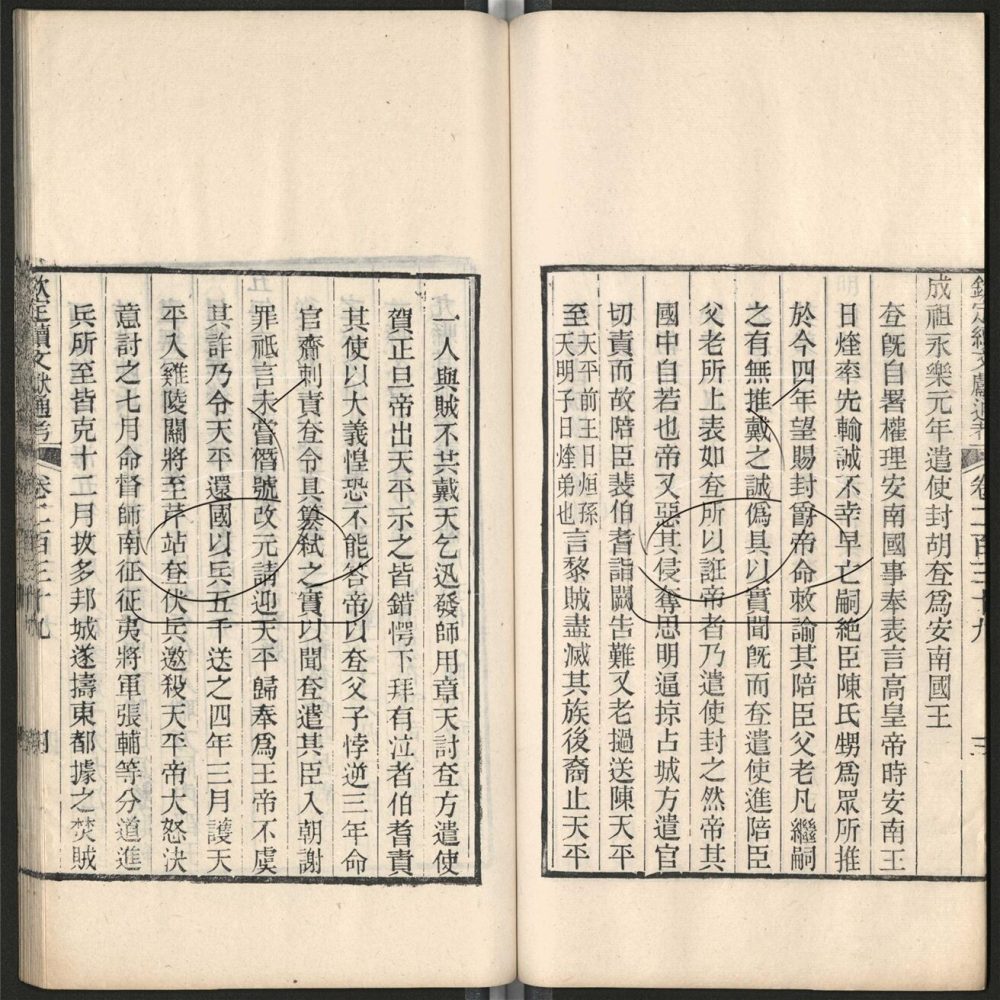 欽定續文獻通考 卷二百三十九 三
成祖永樂元年遣使封胡𡗨爲安南國王
𡗨旣自署權理安南國事奉表言高皇帝時安南王
日煃率先輸誠不幸早亡嗣絶臣陳氏甥爲眾所推
於今四年望賜封爵帝命敕諭其陪臣父老凡繼嗣
之有無推戴之誠僞具以實聞旣而𡗨遣使進陪臣
父老所上表如𡗨所以誑帝者乃遣使封之然帝其
國中自若也帝又惡其侵奪思明逼掠占城方遣官
切責而故陪臣裴伯耆詣闕告難又老撾送陳天平
至天平前王日烜孫天明子日煃弟也言黎賊盡滅其族後裔止天平
一人與賊不共戴天乞迅發師用章天討𡗨方遣使
賀正旦帝出天平示之皆錯愕下拜有泣者伯耆責
其使以大義惶恐不能答帝以𡗨父子悖逆三年命
官齋刺責𡗨令具簒弑之實以聞𡗨遣其臣入朝謝
罪祗言未嘗僭號改元請迎天平歸奉爲王帝不虞
其詐乃令天平還國以兵五千送之四年三月護天
平入雞陵關將至芹站𡗨伏兵邀殺天平帝大怒決
意討之七月命督師南征征夷將軍張輔等分道進
兵所至皆克十二月拔多邦城遂擣東都據之焚賊
欽定續文獻通考 卷二百三十九